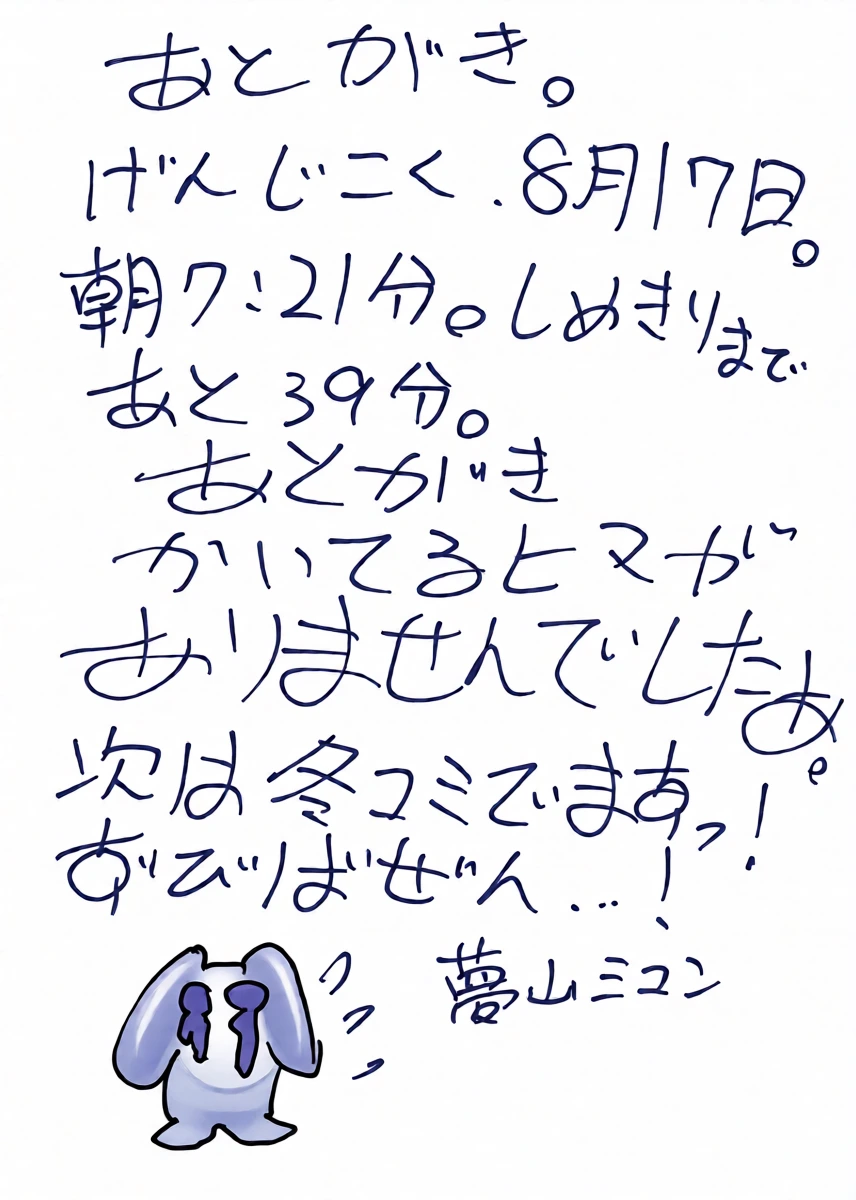 あとがき。
げんじこく.8月17日。
朝7:21分。しめきりまで
あと39分。
あとがき
かいてるヒマが
ありませんでしたぁ。
次は冬コミでまあっ!
あ゛び゛ばぜん...!
夢山ミコン